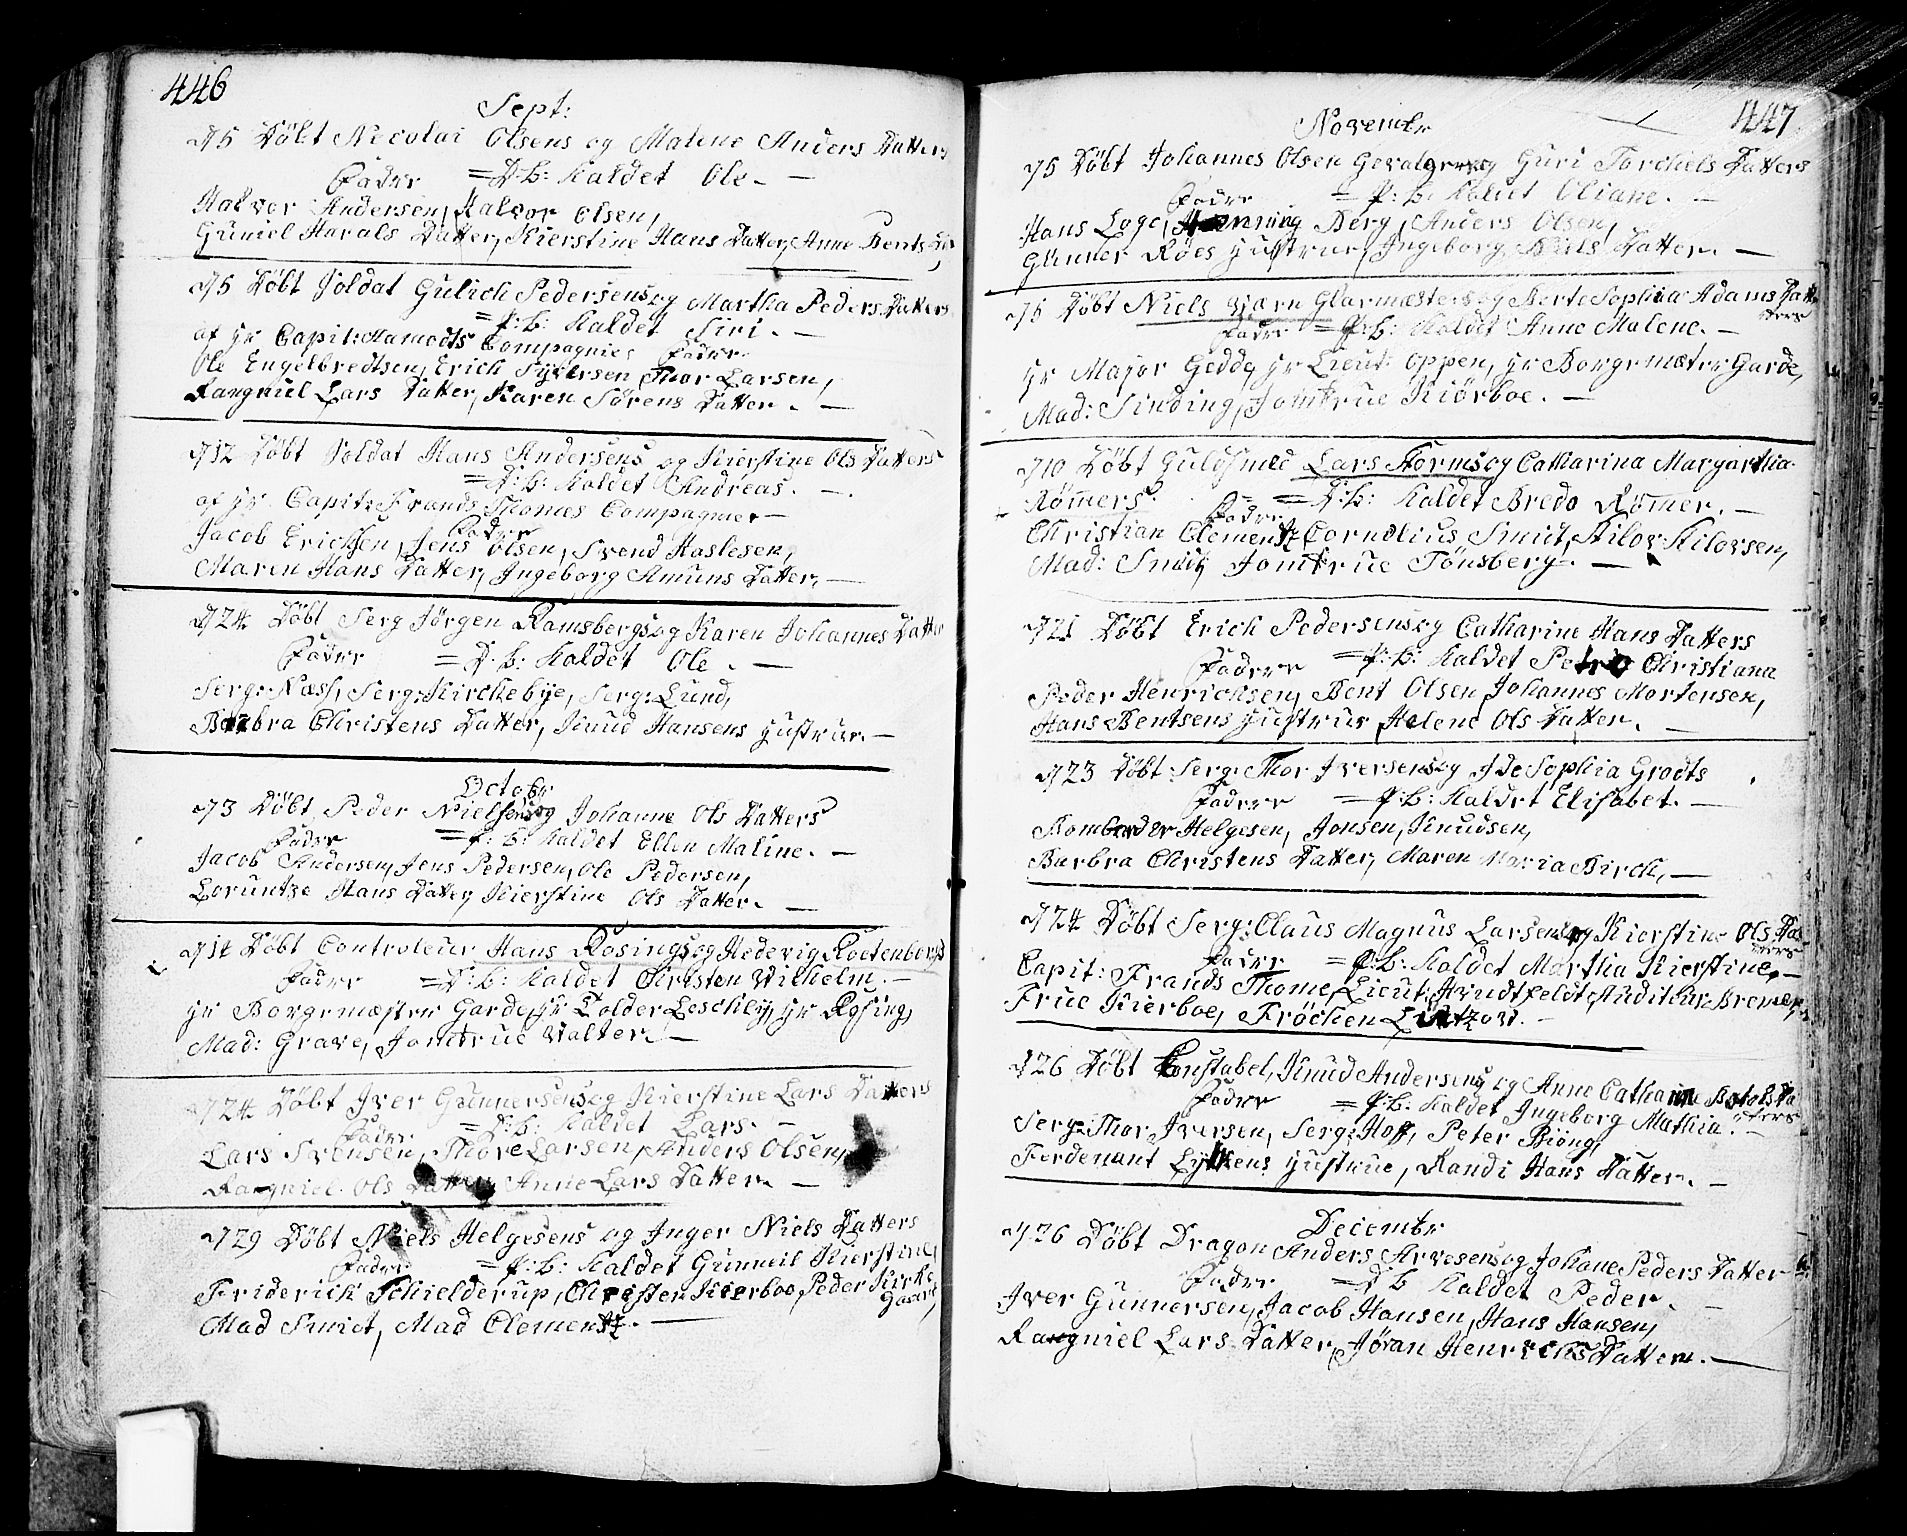 446
Sept:
d 5 Döbt Nicolai Olsens og Malene Anders Datters
Fadrr = D: B: Kaldet Ole. —
Halvor Andersen, Halvor Olsen,
Guniel Harals Datter, Kierstine Hans Datter, Anne Bents
d 5 Döbt Soldat Gulich Pedersens og Martha Peders Datters
= P: B: Kaldet Siri. —
af Hr Capit: Compagnies Fadrr
Ole Engelbredtsen, Erich Syversen Thor Larsen,
Rangniel Lars Datter, Karen Sörens Datter. —
d 12 Döbt Soldat Hans Andersens og Kierstine Ols Datters
= D: B: Kaldet Andreas. —
af Hr Capit: Frands Thomes Compagnie —
Fadrr
Jacob Erichsen, Jens Olsen, Svend Haslesen,
Maren Hans Datter, Ingeborg Amuns Datter, —
d 24 Döbt Serg Jörgen Ramsbergs og Karen Johannes Datter
Fadrr = D: B: Kaldet Ole. —
Serg: Næss, Serg: Kirchebye, Serg: Lund,
Barbra Christens Datter, Knud Hansens Hustrue. —
Octobr
d 3 Döbt Peder Nielsens og Johanne Ols Datters
Fadrr = P: B: Kaldet Ellen Maline. —
Jacob Andersen, Jens Pedersen, Ole Pedersen,
Loruntze Hans Datter, Kierstine Ols Datter. —
d 14 Döbt Controleur Hans Rosings og Hedevig
Fadrr = D: B: Kaldet Christen Wilhelm. —
Hr Borgrmæster Garde, Hr Tolder Leschly, Hr Rosing,
Mad: Grave, Jomfrue Walter. —
d 24 Döbt Iver Gunnersens og Kierstine Lars Datters
Fadrr = D: B: Kaldet Lars. —
Lars Svensen, Thore Larsen, Anders Olsen,
Rangniel Ols Datter, Anne Lars Datter. —
d 29 Döbt Niels Helgesens og Inger Niels Datters
Fadrr = P: B: Kaldet Gunneil Kierstine,
Friderich Schielderup, Christen Kierboe, Peder Kirke
gaard,
Mad Smidt, Mad Clementz. —
447
Novembr
d 5 Döbt Johannes Olsen og Guri Torchels Datters
Fadrr = P: B: Kaldet Oliane. —
Hans Loge, Henning Berg, Anders Olsen,
Gunner Röes Hustrue, Ingeborg Niels Datter. —
d 5 Döbt Niels Glarmæsters og Berte Sophia Adams Dat
ters
Fadrr = P: B: Kaldet Anne Malene. —
Hr Major Gedde, Hr Lieut: Oppen, Hr Borgrmæstr Garde,
Mad: Sinding, Jomfrue Kiörboe. —
d 10 Döbt Guldsmed Lars Storms og Catharina Margartha
Römers. = D: B: Kaldet Bredo Römer. —
Fadrr
Christian Clementz, Cornelius Smidt, Kilov Kilovsen,
Mad: Smidt, Jomfrue Tönsberg. —
d 21 Döbt Erich Pedersens og Catharine Hans Datters
Fadrrr = P: B: Kaldet Christiana
Peder Henrichsen, Bent Olsen, Johannes Mortensen,
Hans Bentsens Hustrue, Helene Ols Datter. —
d 23 Döbt Serg: Thor Iversens og Ide Sophia Grodts
Fadrrr = P: B: Kaldet Elisabet. —
Helgesen, Jonsen, Knudsen,
Barbra Christens Datter, Maren Maria Birch, —
d 24 Döbt Serg: Claus Magnus Larsens og Kierstine Ols Dat
ters
Fadrr = P: B: Kaldet Martha Kierstine, —
Capit: Frands Thome, Lieut: Arndtfeldt, Auditeur Bremer,
Frue Kierboe, Fröchen Lützow. —
d 26 Döbt Constabel, Knud Andersens og Anne Catharina
Fadrr = P: B: Kaldet Ingeborg Mathia. —
Serg: Thor Iversen, Serg: Hoff, Peter Biöng,
Ferdenant Lykkens Hustrue, Randi Hans Datter. —
Decembr
d 26 Döbt Dragon Anders Arvesens og Johane Peders Datter
Fadrr = D B Kaldet Peder. —
Iver Gunnersen, Jacob Hansen, Hans Hansen,
Rangniel Lars Datter, Jöran Henrichs Datter. —